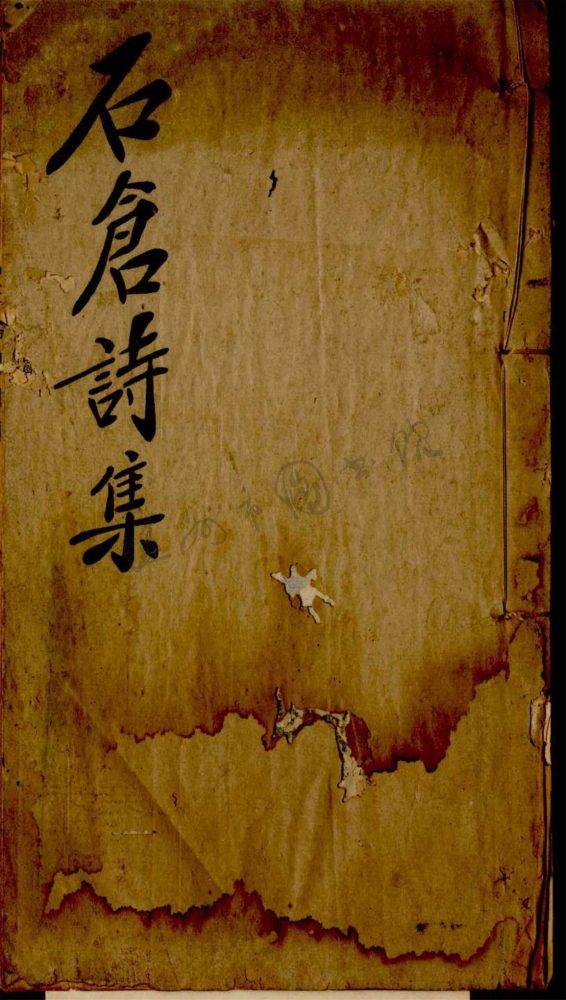 石倉詩集